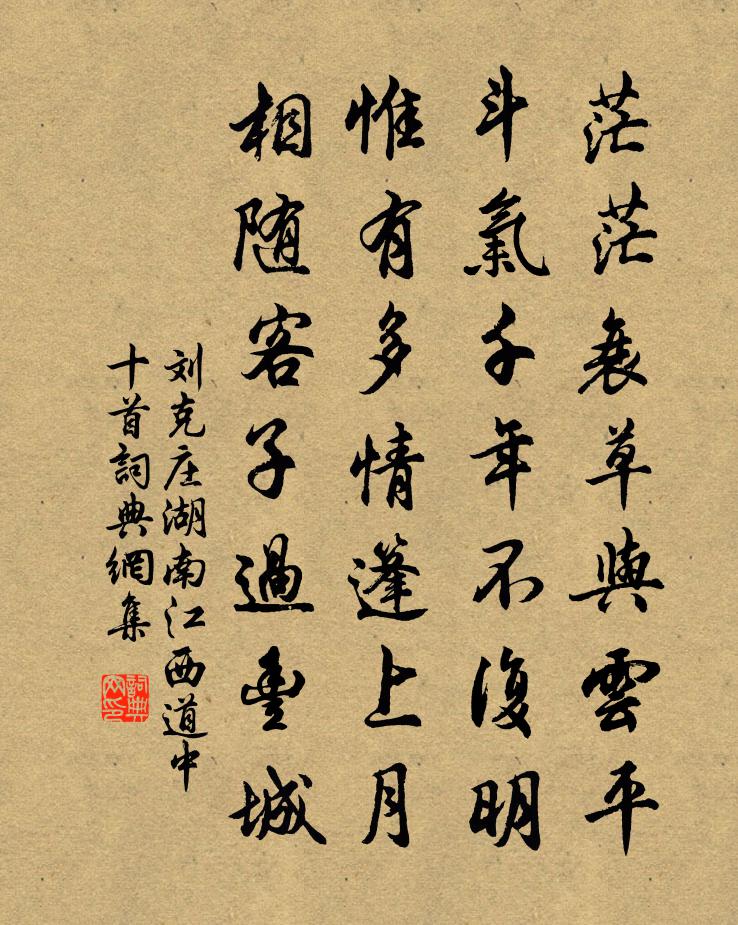 茫茫衰草與雲平
斗氣千年不復明
惟有多情篷上月
相随客子過豐城
刘克庄湖南江西道中
十首詞典網集
詞典網印